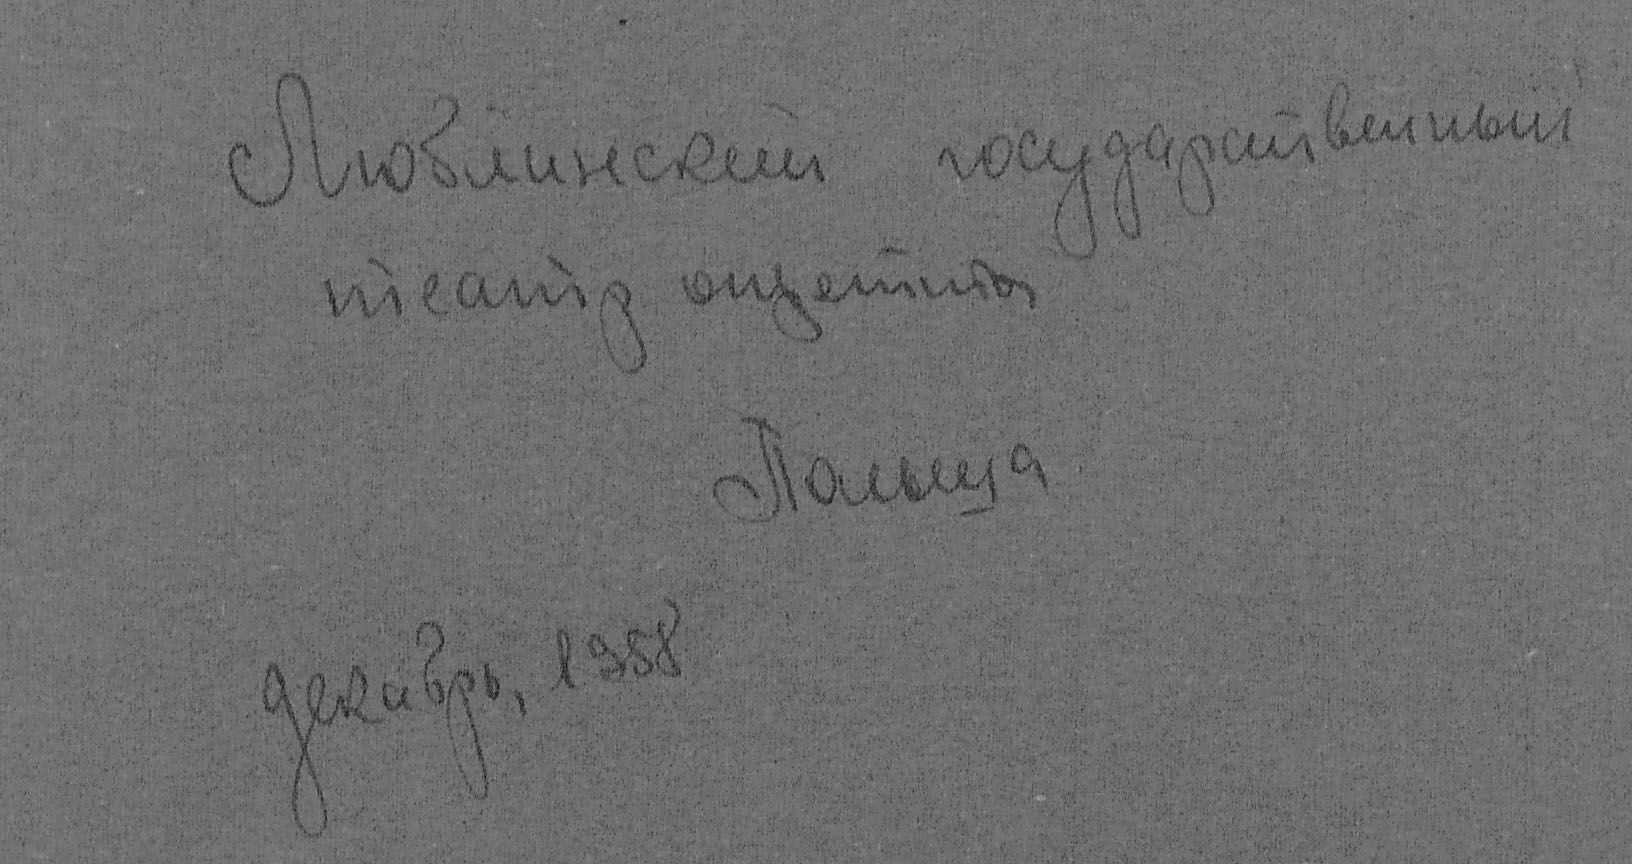 Люблинский государственный
театр оперетты
Польша
декабрь, 1958